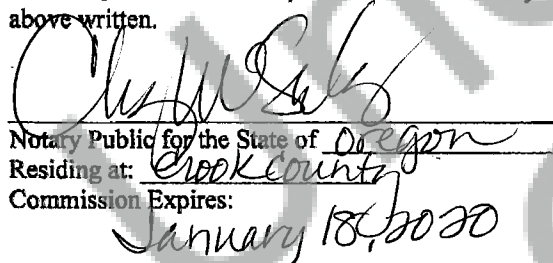 above written.
Notary Public for the State of Oregon
Residing at: Crook County
Commission Expires:
January 18, 2020